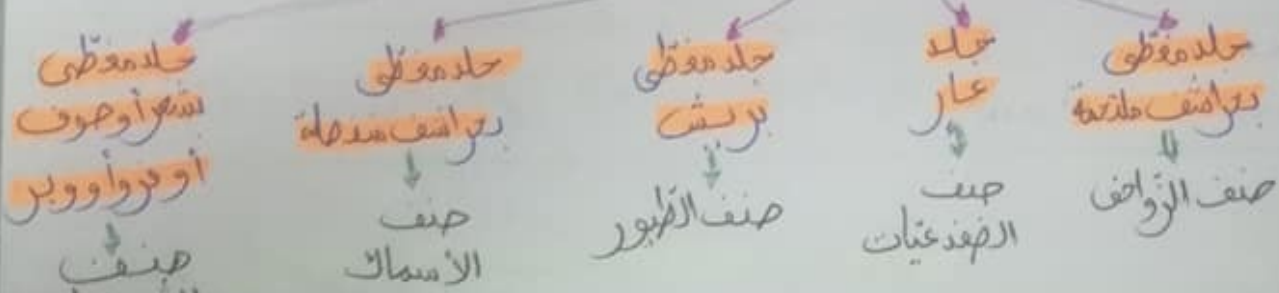 جلد مغطّى
بحراشف ملتحمة
صنف الزّواحف
جلد
عار
صنف
الضفدعيّات
جلد مغطّى
بريش
صنف الطّيور
جلد مغطّى
بحراشف منفصلة
صنف
الأسماك
جلد مغطّى
بشعر أو صوف
أو فرو أو وبر
صنف